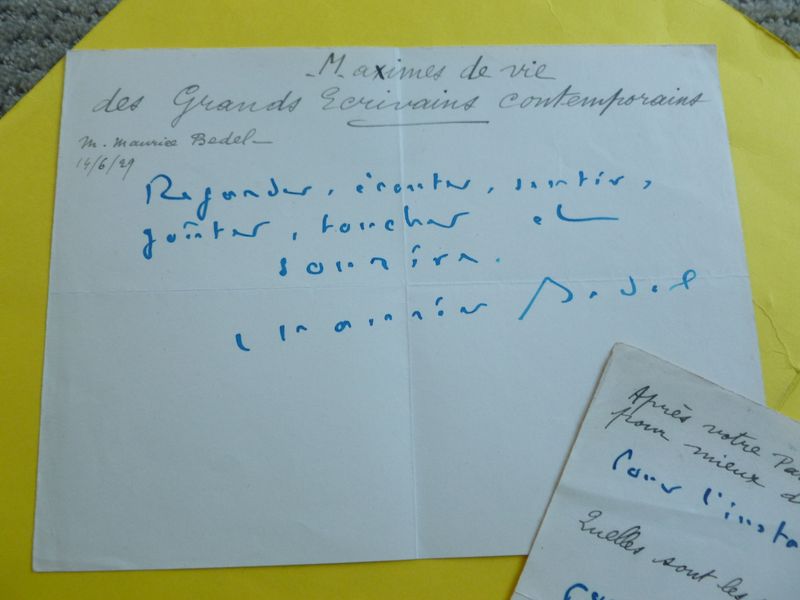 Maximes de vie
des Grands Ecrivains contemporains
M. Maurice Bedel
14/6/29
Regarder, écouter, sentir,
goûter, toucher et
sourire.
Maurice Bedel
Après votre Pa
pour mieux d
Pour l'insta
Quelles sont les